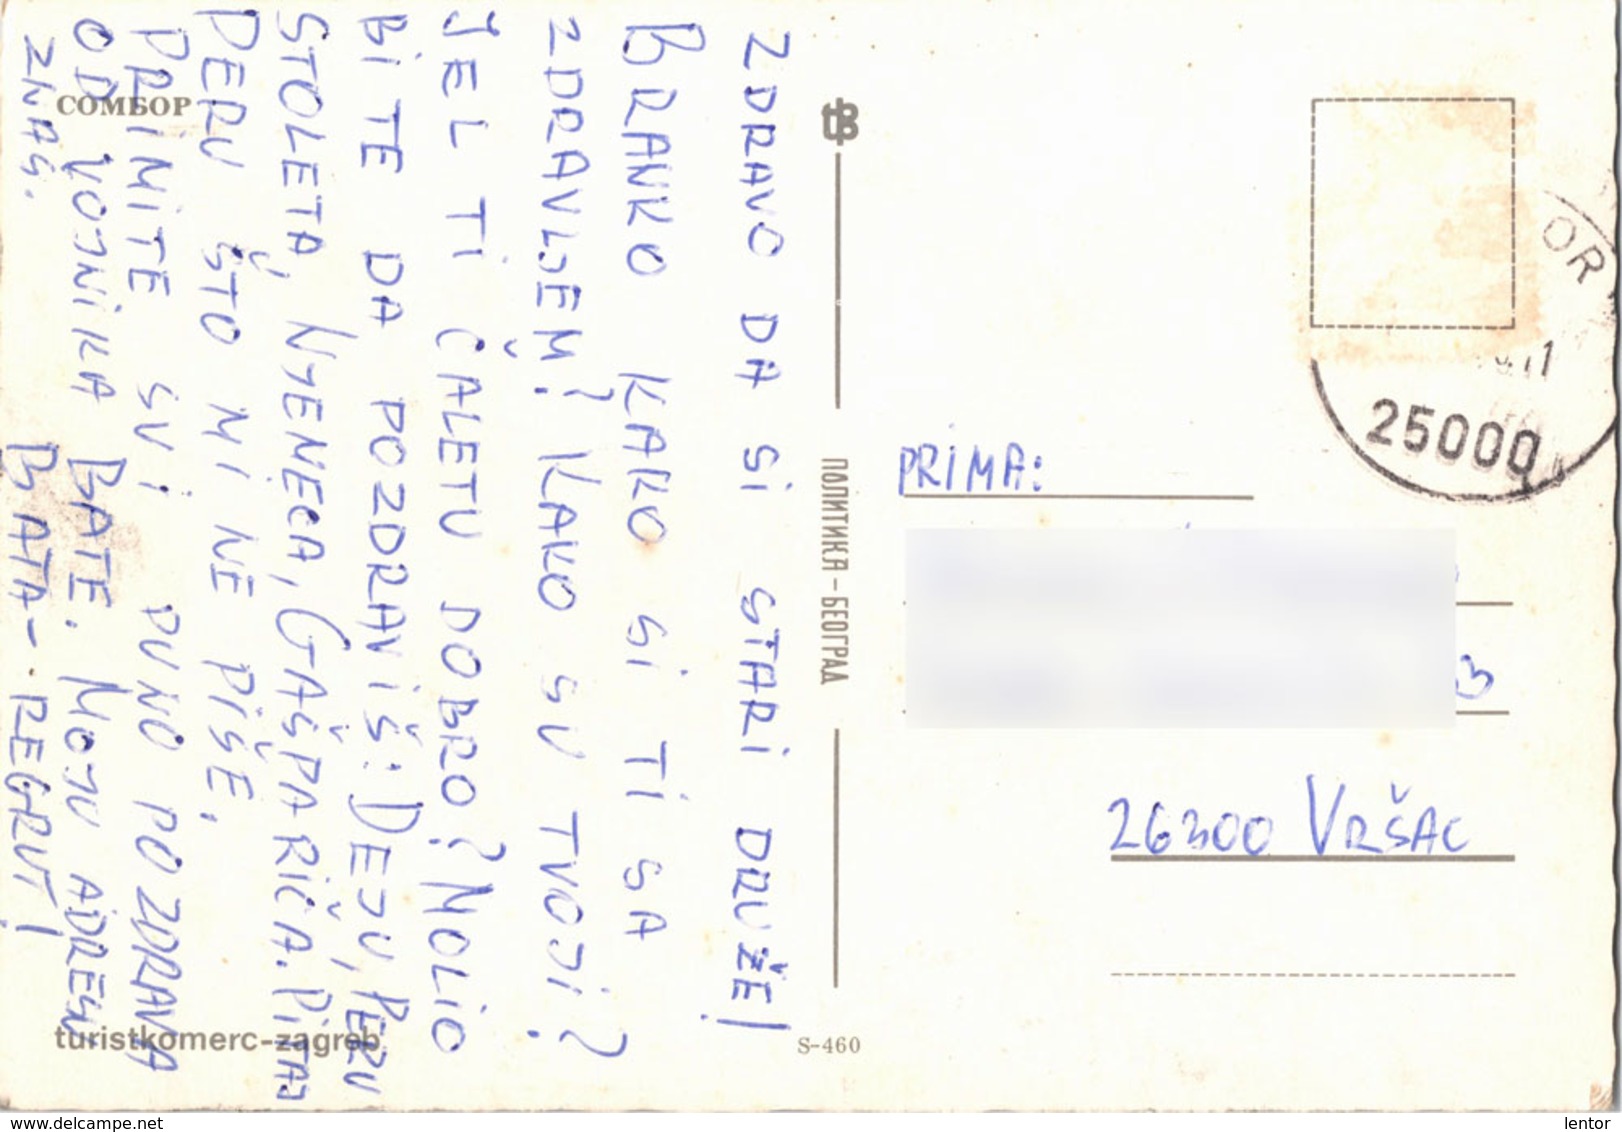 ZDRAVO DA SI STARI DRUŽE!
BRANKO KAKO SI TI SA
ZDRAVLJEM? KAKO SU TVOJI?
JEL TI ĆALETU DOBRO? MOLIO
BI TE DA POZDRAVIŠ: DEJU, PERU
STOLETA, NJENECA, GAŠPARIĆA. PITAJ
PERU ŠTO MI NE PIŠE,
PRIMITE SVI PUNO POZDRAVA
OD VOJNIKA BATE. MOJU ADRESU
ZNAŠ. BATA-REGRUT!
СОМБОР
turistkomerc-zagreb
S-460
ПОЛИТИКА-БЕОГРАД
OR
25000
PRIMA:
26300 VRŠAC
www.delcampe.net
lentor